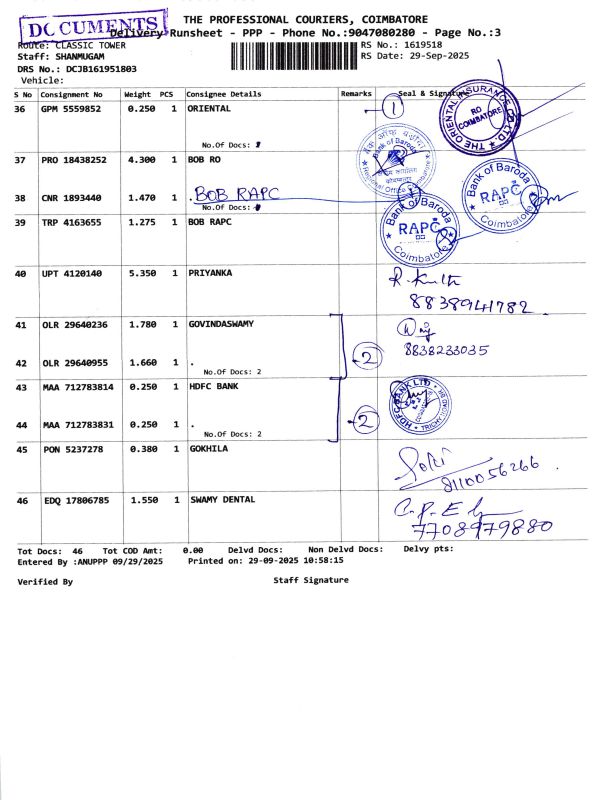 DOCUMENTS
THE PROFESSIONAL COURIERS, COIMBATORE
Delivery Runsheet - PPP - Phone No.:9047080280 - Page No.:3
Route: CLASSIC TOWER
RS No.: 1619518
Staff: SHANMUGAM
RS Date: 29-Sep-2025
DRS No.: DCJB161951803
Vehicle:
S No Consignment No Weight PCS Consignee Details Remarks Seal & Signature
36 GPM 5559852 0.250 1 ORIENTAL
1
THE ORIENTAL INSURANCE CO LTD
RO
COIMBATORE
No.Of Docs:
37 PRO 18438252 4.300 1 BOB RO
Bank of Baroda
38 CNR 1893440 1.470 1 . BOB RAPC
No.Of Docs:
Bank of Baroda
RAPC
Coimbatore
39 TRP 4163655 1.275 1 BOB RAPC
Bank of Baroda
RAPC
Coimbatore
40 UPT 4120140 5.350 1 PRIYANKA
8838941782
41 OLR 29640236 1.780 1 GOVINDASWAMY
8838233035
42 OLR 29640955 1.660 1 .
2
No.Of Docs: 2
43 MAA 712783814 0.250 1 HDFC BANK
HDFC BANK LTD
44 MAA 712783831 0.250 1 .
2
No.Of Docs: 2
45 PON 5237278 0.380 1 GOKHILA
8110056266
46 EDQ 17806785 1.550 1 SWAMY DENTAL
7708979880
Tot Docs: 46 Tot COD Amt: 0.00 Delvd Docs: Non Delvd Docs: Delvy pts:
Entered By :ANUPPP 09/29/2025 Printed on: 29-09-2025 10:58:15
Verified By Staff Signature